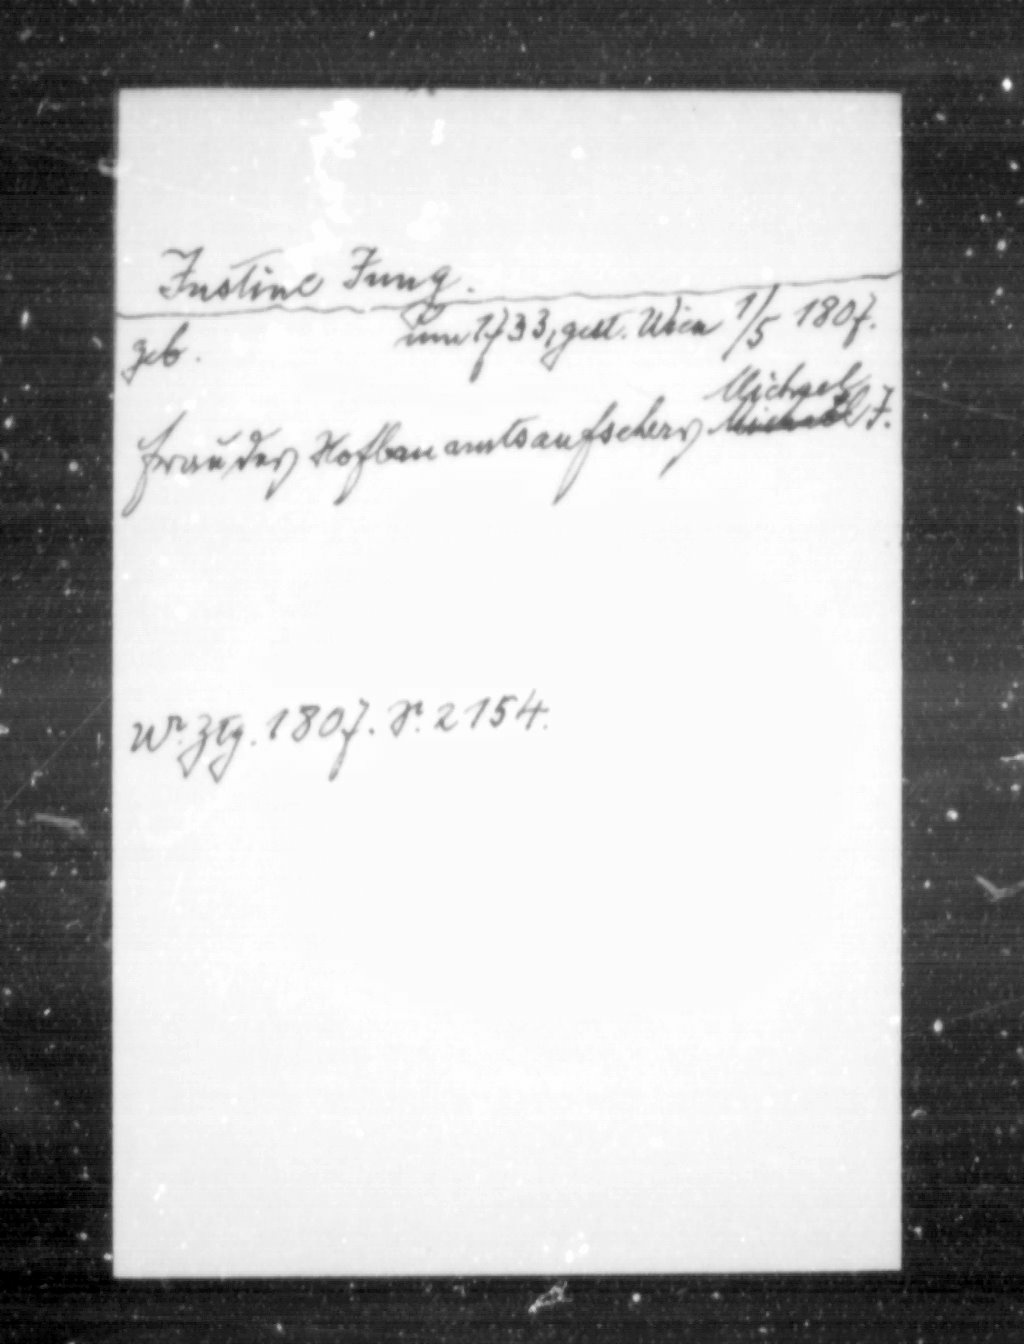 Justine Jung.
geb. um 1733, gest. Wien 1/5 1807.
Michael
Frau des Hofbauamtsaufsehers Michael J.
Wr. Ztg. 1807. S. 2154.